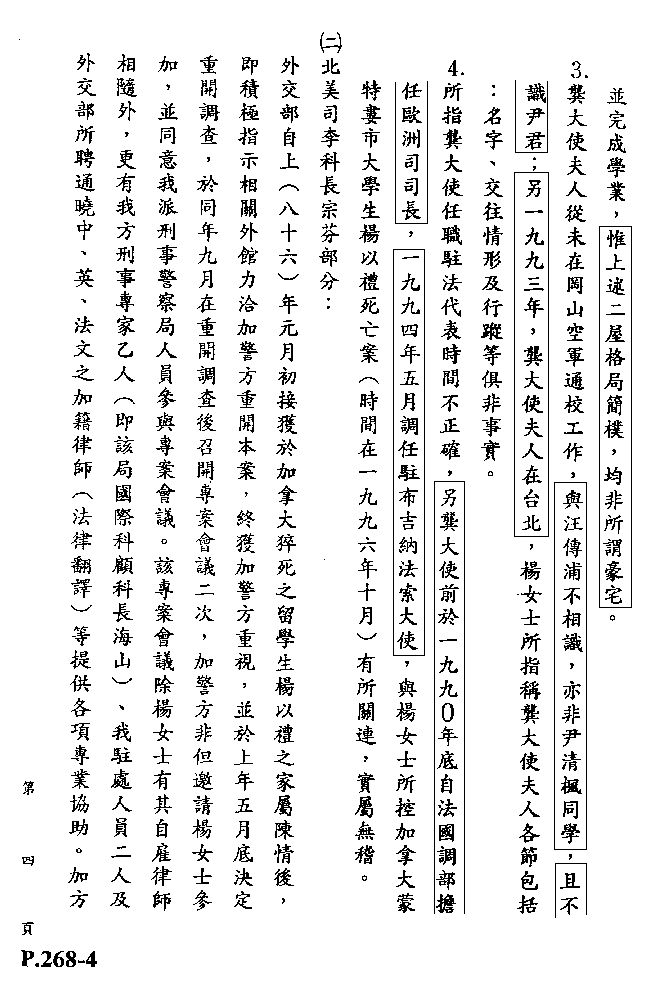 並完成學業，惟上述二屋格局簡樸，均非所謂豪宅。
3.龔大使夫人從未在岡山空軍通校工作，與汪傳浦不相識，亦非尹清楓同學，且不
識尹君；另一九九三年，龔大使夫人在台北，楊女士所指稱龔大使夫人各節包括
：名字、交往情形及行蹤等俱非事實。
4.所指龔大使任職駐法代表時間不正確，另龔大使前於一九九０年底自法國調部擔
任歐洲司司長，一九九四年五月調任駐布吉納法索大使，與楊女士所控加拿大蒙
特婁市大學生楊以禮死亡案（時間在一九九六年十月）有所關連，實屬無稽。
(二)北美司李科長宗芬部分：
外交部自上（八十六）年元月初接獲於加拿大猝死之留學生楊以禮之家屬陳情後，
即積極指示相關外館力洽加警方重開本案，終獲加警方重視，並於上年五月底決定
重開調查，於同年九月在重開調查後召開專案會議二次，加警方非但邀請楊女士參
加，並同意我派刑事警察局人員參與專案會議。該專案會議除楊女士有其自雇律師
相隨外，更有我方刑事專家乙人（即該局國際科顧科長海山）、我駐處人員二人及
外交部所聘通曉中、英、法文之加籍律師（法律翻譯）等提供各項專業協助。加方
第四頁
P.268-4